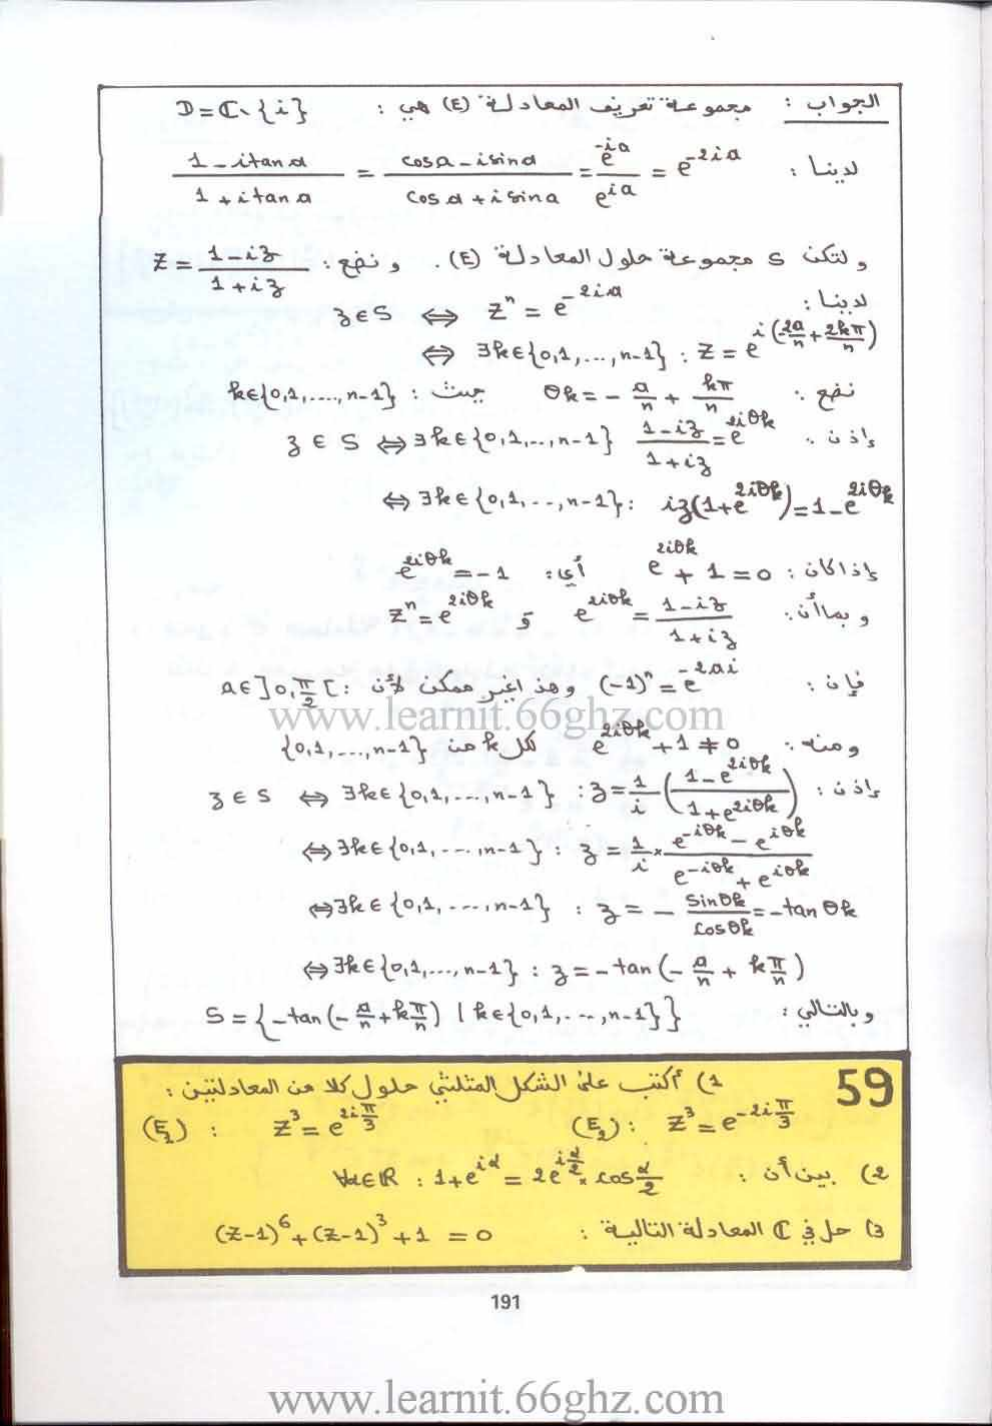 الجواب : مجموعة تعريف المعادلة (E) هي : D=ℂ\{i}
لدينا : (1-i tan a)/(1+i tan a) = (cos a - i sin a)/(cos a + i sin a) = e^{-ia}/e^{ia} = e^{-2ia}
ولتكن S مجموعة حلول المعادلة (E). ونضع : Z = (1-iz)/(1+iz)
لدينا : z∈S ⇔ Z^n = e^{-2ia}
⇔ ∃k∈{0,1,...,n-1} : Z = e^{i(-2a/n + 2kπ/n)}
نضع : θk = - a/n + kπ/n حيث : k∈{0,1,....,n-1}
إذن : z ∈ S ⇔ ∃k∈{0,1,...,n-1} (1-iz)/(1+iz) = e^{2iθk}
⇔ ∃k∈{0,1,...,n-1} : iz(1+e^{2iθk}) = 1-e^{2iθk}
إذا كان : e^{2iθk} + 1 = 0 أي : e^{2iθk} = -1
وبما أن : e^{2iθk} = (1-iz)/(1+iz) و Z^n = e^{2iθk}
فإن : (-1)^n = e^{-2ai} وهذا غير ممكن لأن : a∈]0,π/2[
www.learnit.66ghz.com
ومنه : e^{2iθk} + 1 ≠ 0 لكل k من {0,1,...,n-1}
إذن : z∈S ⇔ ∃k∈{0,1,...,n-1} : z = 1/i ((1-e^{2iθk})/(1+e^{2iθk}))
⇔ ∃k∈{0,1,...,n-1} : z = 1/i × (e^{-iθk} - e^{iθk})/(e^{-iθk} + e^{iθk})
⇔ ∃k∈{0,1,...,n-1} : z = - sin θk/cos θk = -tan θk
⇔ ∃k∈{0,1,...,n-1} : z = -tan(- a/n + k π/n)
وبالتالي : S = {-tan(- a/n + k π/n) | k∈{0,1,...,n-1}}
59
1) أكتب على الشكل المثلثي حلول كلا من المعادلتين :
(E₂) : Z³ = e^{-2iπ/3} (E₁) : Z³ = e^{2iπ/3}
2) بين أن : ∀α∈ℝ : 1+e^{iα} = 2e^{iα/2} × cos α/2
3) حل في ℂ المعادلة التالية : (Z-1)⁶+(Z-1)³+1 = 0
191
www.learnit.66ghz.com